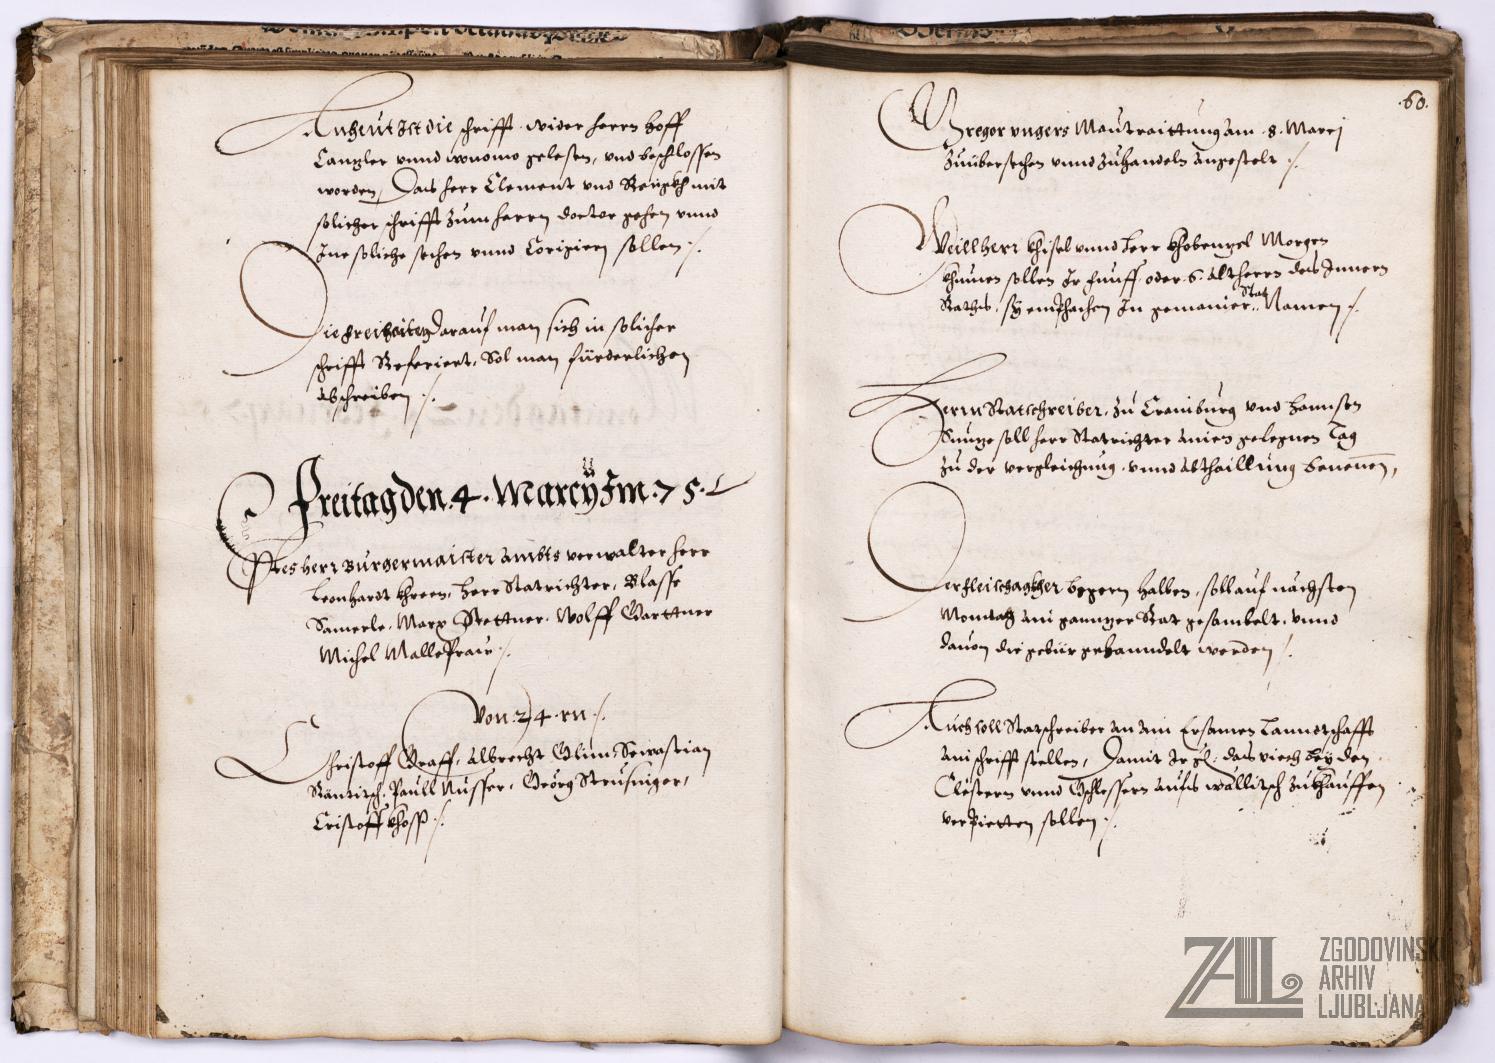 An heut ist die schrifft wider herrn hoff
Canzler unnd gelesen, und beschlossen
worden, Das herr Clement und mit
solicher schrifft zum herrn doctor gehen unnd
Ine soliche sechen unnd Corigiern sollen ./.
Die freiheiten darauf man sich in solicher
schrifft Referiert, Sol man fürderlichen
abschreiben ./.
Freitag den .4. Marcy Im .75.
Pres herr Burgermaister ambts verwalter herr
Leonhardt Khreen, herr Statrichter, Blasse
Samerle, Marx Stettner, Wolff Garttner
Michel ./.
Von .24.rn ./.
Christoff Graff, Albrecht Glim, Sewastian
Räntisch, Paull Nusser, Geörg
Cristoff Khoss ./.
.60.
Gregor ungers Mautraittung am .8. Marcj
zuübersechen unnd zuhandeln angestelt ./.
Weill herr Khisel unnd herr Khobenzel Morgen
khumen sollen Ir funff oder 6 Altherrn des Innern
Raths, sy emphachen In gemainer Stat Namen ./.
Herrn Statschreiber, zu Crainburg und hannsen
soll herr Statrichter ainen gelegnen Tag
zu der vergleichung unnd abthaillung benenen,
Der fleischagkher begern halben, soll auf nachsten
Montag ain ganntzer Rat gesamblet, unnd
davon die gebür gehanndelt werden ./.
Auch soll Statschreiber an ain Ersamen Lanndtschafft
ain schrifft stellen, Damit Ir gl: das viech bey den
Clöstern unnd Gschlössern aufs wällisch zukhauffen
verpietten sollen ./.
ZAL
ZGODOVINSKI
ARHIV
LJUBLJANA